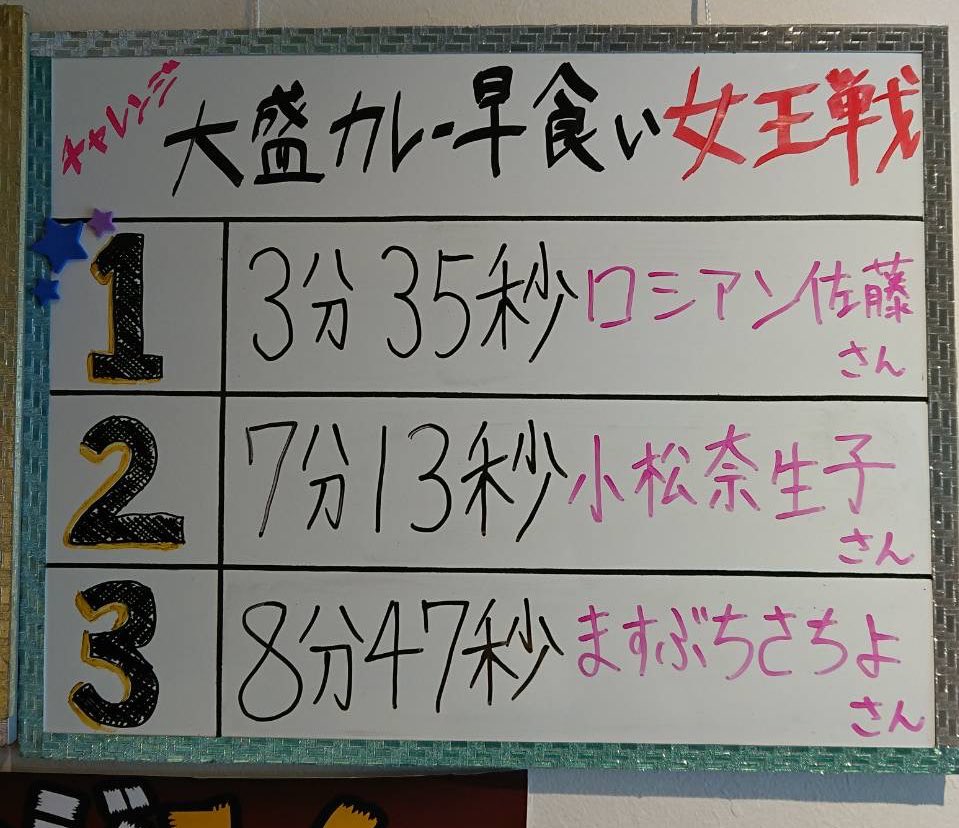 チャレンジ 大盛カレー早食い女王戦
1 3分35秒 ロシアン佐藤
さん
2 7分13秒 小松奈生子
さん
3 8分47秒 ますぶちさちよ
さん